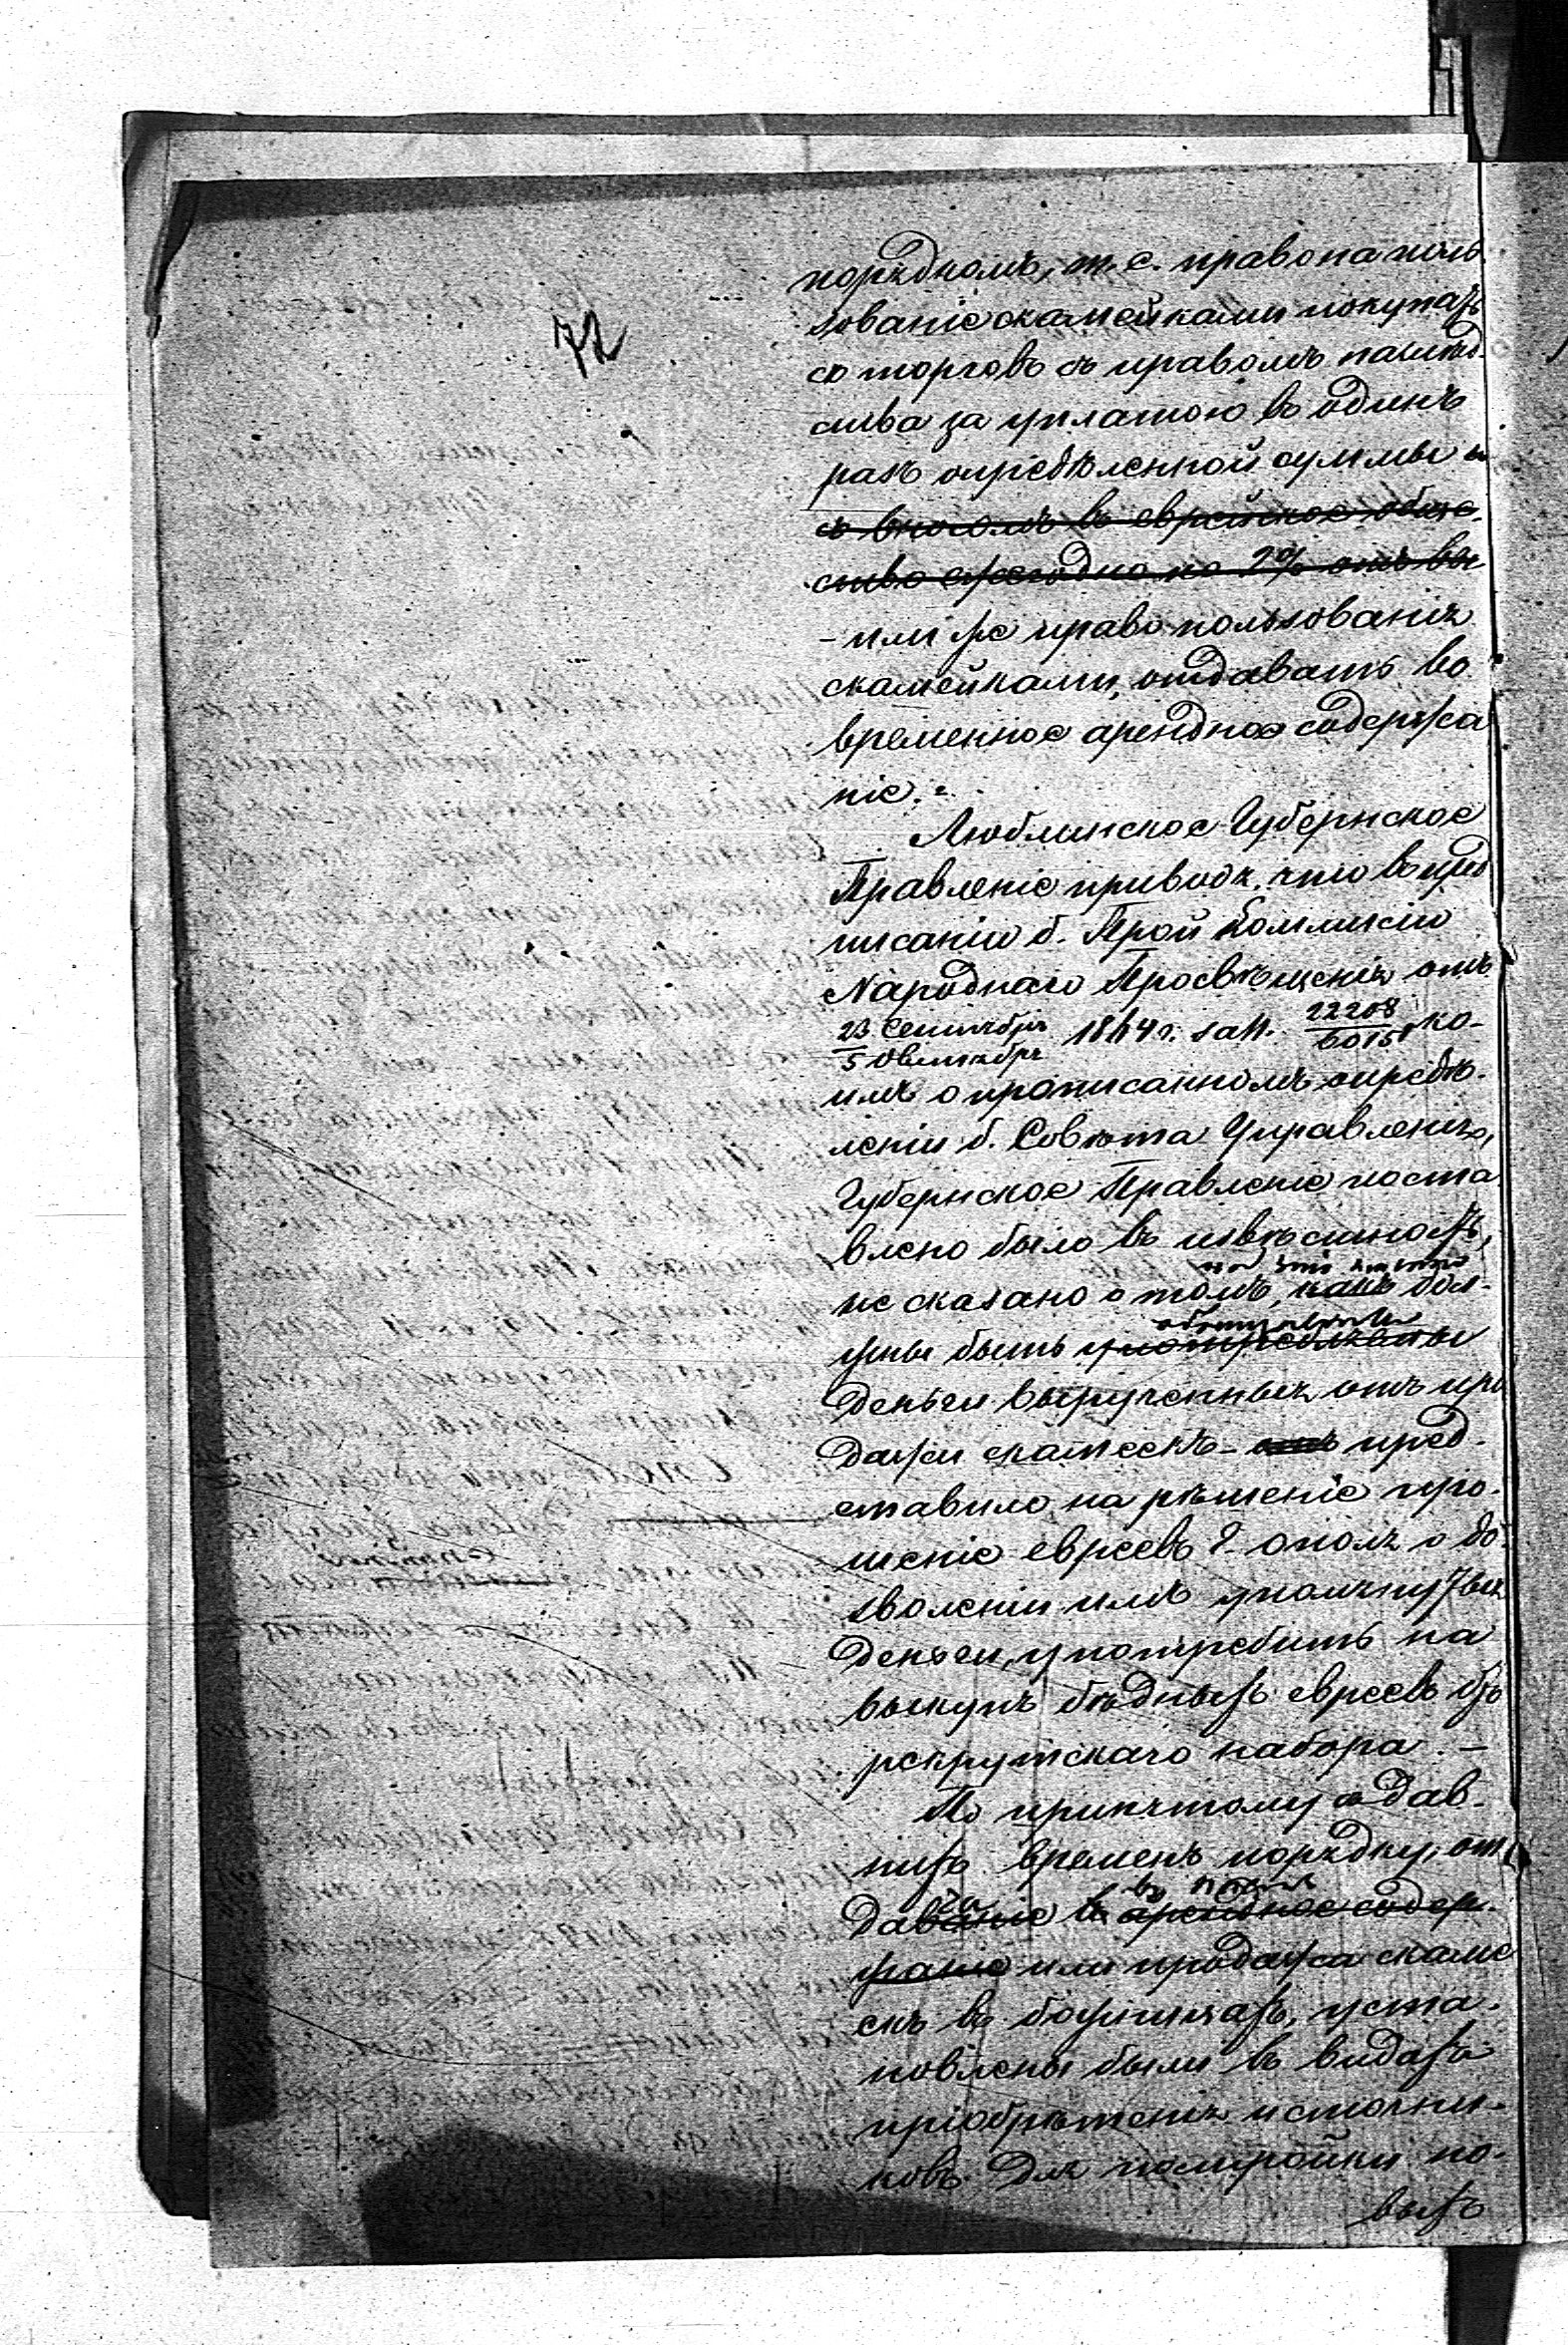 72
порядкомъ, т. е. право на поль-
зованіе скамейками покупать
съ торговъ съ правомъ наслѣд-
ства за уплатою въ одинъ
разъ опредѣленной суммы
съ взносомъ въ еврейское обще-
ство ежегодно по 2% отъ вы
- или же право пользованія
скамейками, отдавать во
временное арендное содержа
ніе."
Люблинское Губернское
Правленіе приводя, что въ пред
писаніи б. Прой Коммисіи
Народнаго Просвѣщенія отъ
23 Сентября / 5 Октября 1864 г. за N. 22208/6015 ко-
имъ о прописанномъ опредѣ-
леніи б. Совѣта Управленія,
Губернское Правленіе поста
влено было въ извѣстность,
не сказано о томъ, какъ дол-
на что именно
жны быть употребляемы
обращаемы
деньги вырученныя отъ про
дажи скамеекъ - пред-
ставило на рѣшеніе про-
шеніе евреевъ г. Ополя о до-
зволеніи имъ упомянутыя
деньги, употребить на
выкупъ бѣдныхъ евреевъ отъ
рекрутскаго набора. -
По принятому съ дав-
нихъ временъ порядку, от
даваніе въ арендное содер-
жаніе или продажа скаме
екъ въ божницахъ, уста-
новлены были въ видахъ
пріобрѣтенія источни-
ковъ для постройки но-
выхъ